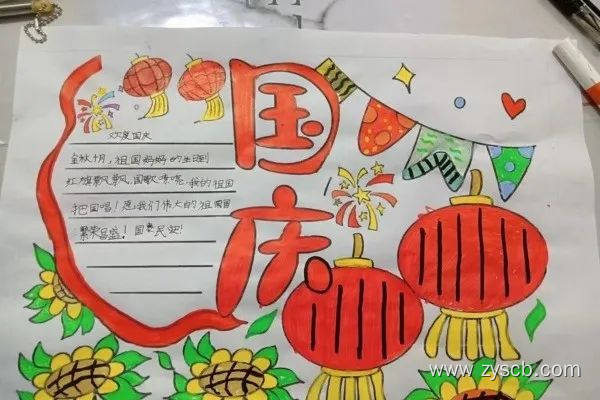 国庆
欢度国庆
金秋十月，祖国妈妈的生日到
红旗飘飘，国歌嘹亮，我的祖国
把国唱！愿我们伟大的祖国
繁荣昌盛！国泰民安！
www.zyscb.com